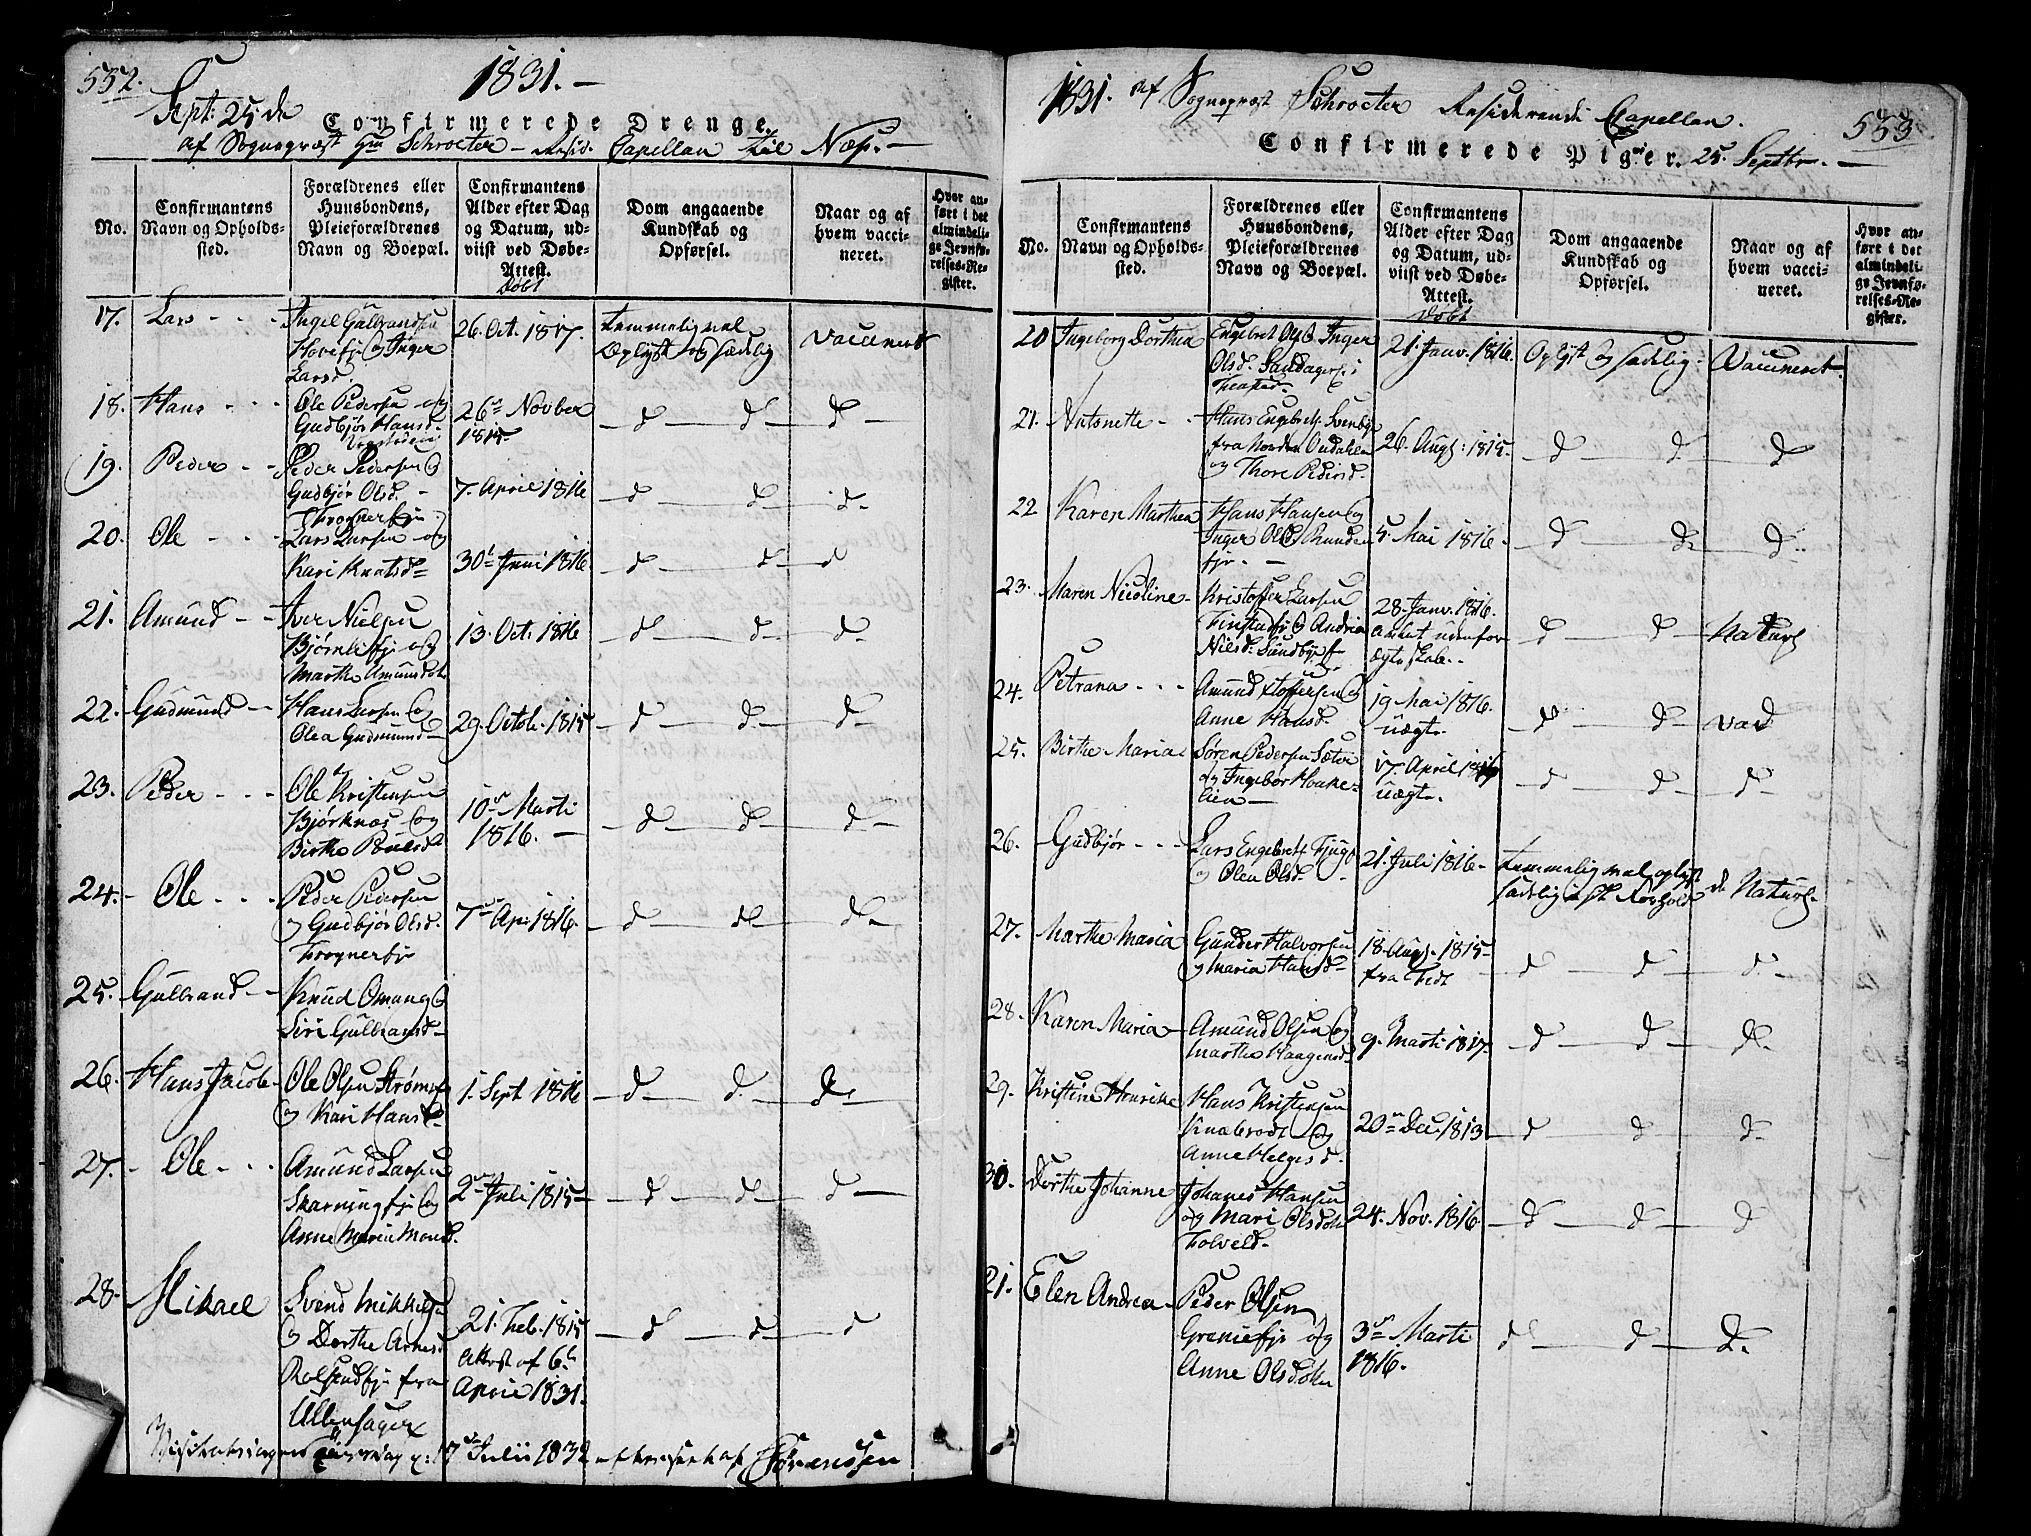 552.
1831.-
Sept: 25 de
Confirmerede Drenge.
af Sognepræst Hr Schroeter - Resid. Capellan til Næs.-
No.
Confirmantens Navn og Opholdssted.
Forældrenes eller Huusbondens, Pleieforældrenes Navn og Boepæl.
Confirmantens Alder efter Dag og Datum, udviist ved Døbe-Attest.
Døbt
Dom angaaende Kundskab og Opførsel.
Naar og af hvem vaccineret.
Hvor anført i det almindelige Jevnførelses-Register.
17. Lars - - -
Ingel Gulbrandsen
Hovefje og Inger
Larsd.
26. Oct. 1817.
temmelig vel
Oplyst og sædelig
vaccineret
18. Hans - - -
Ole Pedersen og
Gudbjør Hansd.
26 Novber
1815.
d d d
19. Peder - -
Peder Pedersen og
Gudbjør Olsd. -
Frognerfje
7. April 1816
d d d
20. Ole - - -
Lars Larsen og
Kari Knutsd
30 Juni 1816.
d d d
21. Amund - -
Iver Nielsen
Bjørnlifje og
Marthe Amunsdotr
13. Oct. 1816
d d d
22. Gudmund -
Hans Larsen og
Olea Gudmund
29. Octob. 1815
d d d
23. Peder - - -
Ole Kristensen
Bjørknæs og
Birthe Poulsd
10 Marti
1816. -
d d d
24. Ole - - -
Peder Pedersen
og Gudbjør Olsd.
Frognerfje
7 Apr. 1816.
d d d
25. Gulbrand - -
Knud Omang og
Siri Gulbrandsd
26. Hans Jacob -
Ole Olsen Strøms
og Kari Hans
1. Sept 1816
d d d
27. Ole - - -
Amund Larsen
Skarningfje og
Anne Maria Monsd.
2 Juli 1815
d d d
28. Mikael
Svend Mikkels
og Dorthe Arnesd
Rolfsrudfje fra
Ullensager
21. Feb. 1815
Attest af 6.
April 1831.
d d d
17 Julii 1832 Sørenssen
1831. af Sognepræst Schroeter Residerende Capellan.
553
Confirmerede Piger. 25. Septbr. -
No.
Confirmantens Navn og Opholdssted.
Forældrenes eller Huusbondens, Pleieforældrenes Navn og Boepæl.
Confirmantens Alder efter Dag og Datum, udviist ved Døbe-Attest.
Døbt
Dom angaaende Kundskab og Opførsel.
Naar og af hvem vaccineret.
Hvor anført i det almindelige Jevnførelses-Register.
20 Ingeborg Dorthea
Engebret Ols. Inger
Olsd. Sandager i
21. Janv. 1816.
Oplyst og sædelig.
Vaccineret.
21. Antonette - -
Hans Engebrets. Svenby
fra Nordre Oudalen
og Thore Pedersd.
26. Augs: 1815.
d d d
22 Karen Marthea
Hans Hansen og
Inger Olsd. Runden
fje. -
5. Mai 1816.
d d d
23. Maren Nicoline -
Kristoffer Larsen
Finstadfje og Andria
Nilsd. Sundbyef
28. Janv. 1816.
udenfor
Ægteskab..
d d Naturl
24. Petrana - - -
Amund Stoffersen og
Anne Hansd.
19 Mai 1816.
uægte.
d d vac
25. Birthe Maria
Søren Pedersen Sæter
og Ingebor Haake-
lien
17. April
uægte.
d d d
26. Gudbjør - - -
Lars Engebrets Fjuge
og Olea Olsd.
21. Juli 1816.
temmelig vel oplyst
sædelig i Forhold
Naturl.
27. Marthe Maria
Gunder Halvorsen
og Maria Hansd
18. Augs. 1815
fra
d d d
28. Karen Maria
Amund Olsen og
Marthe Haagensd
9. Marti 1817.
d d d
29. Kristine Henrikke
Hans Kristensen
Knaberodt og
Anne Helgesd.
20 Dec. 1813
d d d
30. Dorthe Johanne
Johanes Hansen
og Mari Olsdotr
Tolveld.
24. Nov. 1816
d d d
21. Elen Andrea
Peder Olsen
Graniefje og
Anne Olsdotter
3 Marti
1816.
d d d